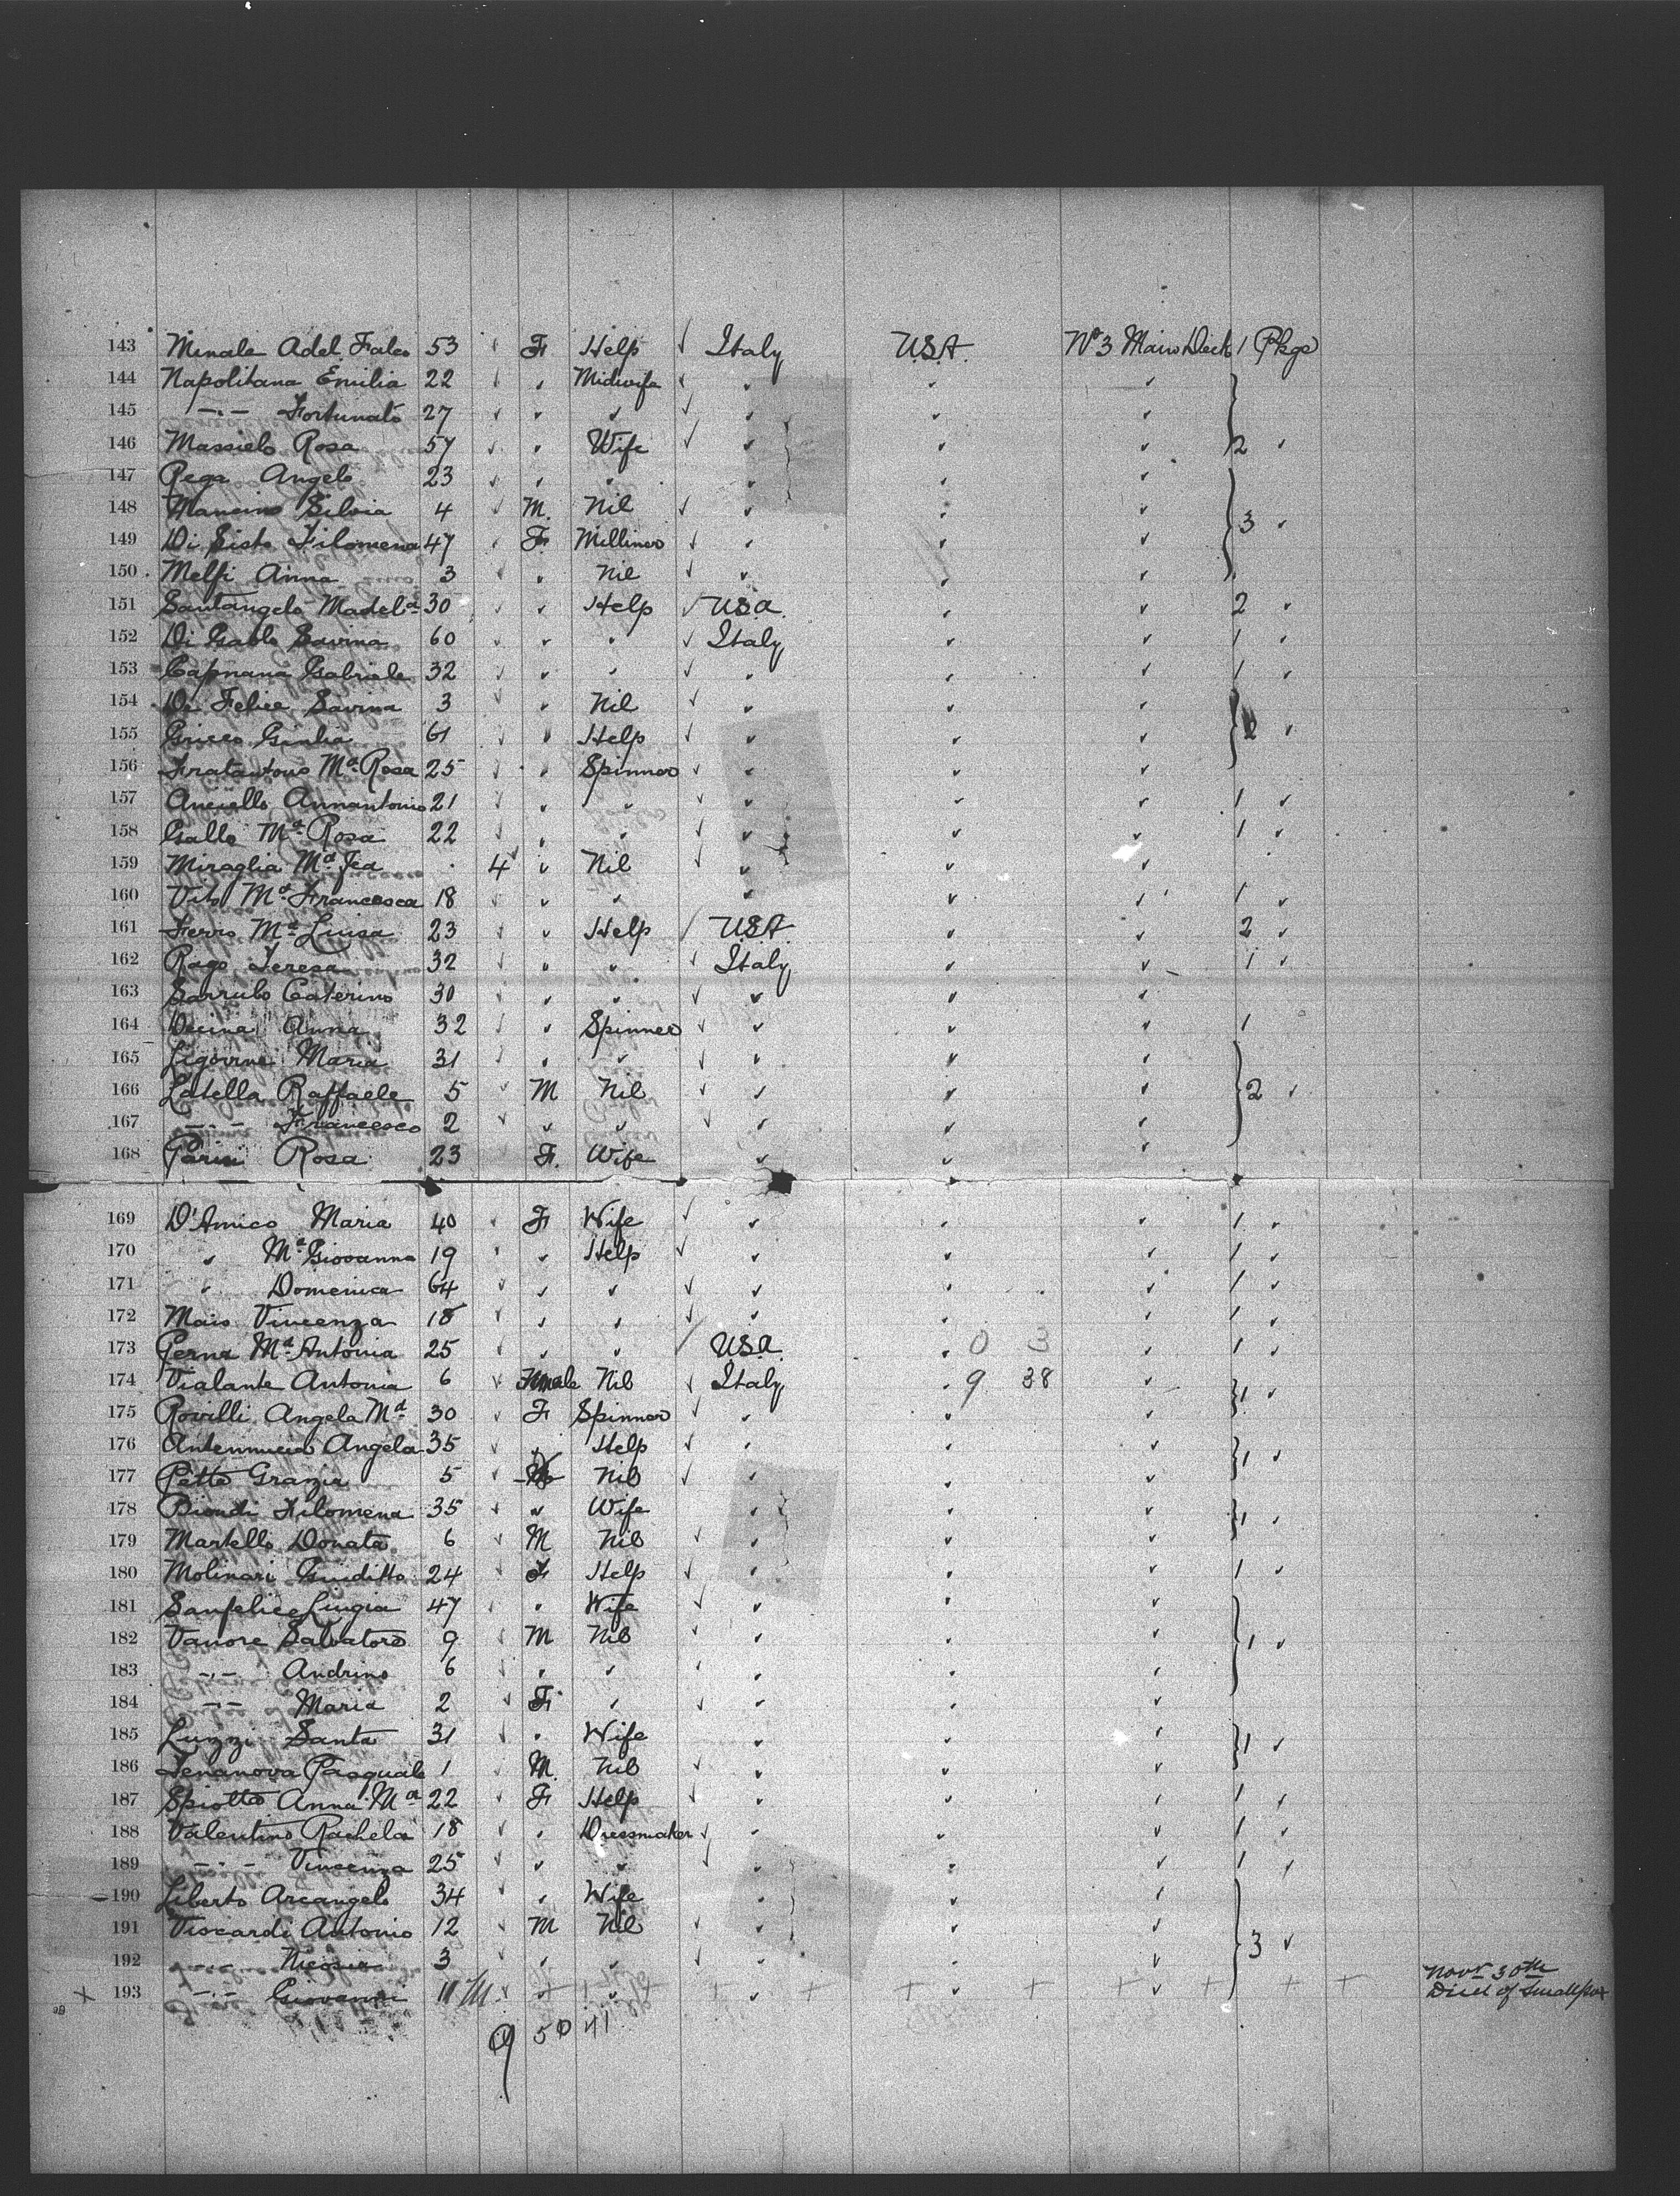 143 Minale Adel. Falco 53 F Help Italy U.S.A. No 3 Main Deck 1 Pkge
144 Napolitana Emilia 22 " Midwife " " "
145 -"- Fortunato 27 " " " " "
146 Massielo Rosa 57 " Wife " " " 2 "
147 Rega Angelo 23 " " " " "
148 Mancino Silvia 4 M. Nil " " "
149 Di Sisto Filomena 47 F. Milliner " " " 3 "
150 Melfi Anna 3 " Nil " " "
151 Santangelo Madelª 30 " Help USA " " 2 "
152 Di Paolo Savina 60 " " Italy " " 1 "
153 Capnana Gabriele 32 " " " " " 1 "
154 De Felice Savina 3 " Nil " " "
155 Gricco Giulia 61 " Help " " " 2 "
156 Fratantono Mª Rosa 25 " Spinner " " "
157 Anciello Annantonio 21 " " " " " 1 "
158 Gallo Mª Rosa 22 " " " " " 1 "
159 Miraglia Mª 4 " Nil " " "
160 Vito Mª Francesca 18 " " " " " 1 "
161 Ferro Mª Luisa 23 " Help USA " " 2 "
162 Rago Teresa 32 " " Italy " " 1 "
163 Sarrubo Caterino 30 " " " " "
164 Decina Anna 32 " Spinner " " " 1
165 Maria 31 " " " " "
166 Latella Raffaele 5 M Nil " " " 2 "
167 -"- Francesco 2 " " " " "
168 Parisi Rosa 23 F. Wife " " "
169 D'Amico Maria 40 F Wife " " " 1 "
170 " Mª Giovanna 19 " Help " " " 1 "
171 " Domenica 64 " " " " " 1 "
172 Maio Vincenza 18 " " " " " 1 "
173 Perna Mª Antonia 25 " " USA " 0 3 " 1 "
174 Vialante Antonia 6 Female Nil Italy " 9 38 " 1 "
175 Rovilli Angela Mª 30 F Spinner " " "
176 Antennucci Angela 35 " Help " " " 1 "
177 Petta Grazia 5 Nil " " "
178 Biondi Filomena 35 " Wife " " " 1 "
179 Martello Donato 6 M Nil " " "
180 Molinari Giuditta 24 F Help " " " 1 "
181 Sanfelice Luigia 47 " Wife " " "
182 Vanore Salvatore 9 M Nil " " " 1 "
183 -"- Andrino 6 " " " " "
184 -"- Maria 2 F " " " "
185 Luzzi Santa 31 " Wife " " " 1 "
186 Tenanova Pasquale 1 M. Nil " " "
187 Spiotta Anna Mª 22 F Help " " " 1 "
188 Valentino Rachela 18 " Dressmaker " " " 1 "
189 -"- Vincenza 25 " " " " " 1 "
190 Liberto Arcangelo 34 " Wife " " "
191 Viocardi Antonio 12 M Nil " " "
192 -"- 3 " " " " " 3 "
x 193 -"- Giovanni 11 M " " " " " Novr 30th
Died of Smallpox
9 50 41